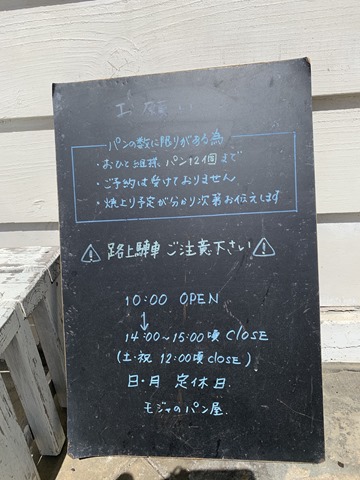 パンの数に限りがある為
・おひと組様 パン12個まで
・ご予約は受けておりません
・焼上り予定が分かり次第お伝えします
⚠路上駐車ご注意下さい⚠
10:00 OPEN
↓
14:00〜15:00頃 CLOSE
(土・祝 12:00頃 CLOSE)
日・月 定休日.
モジャのパン屋.